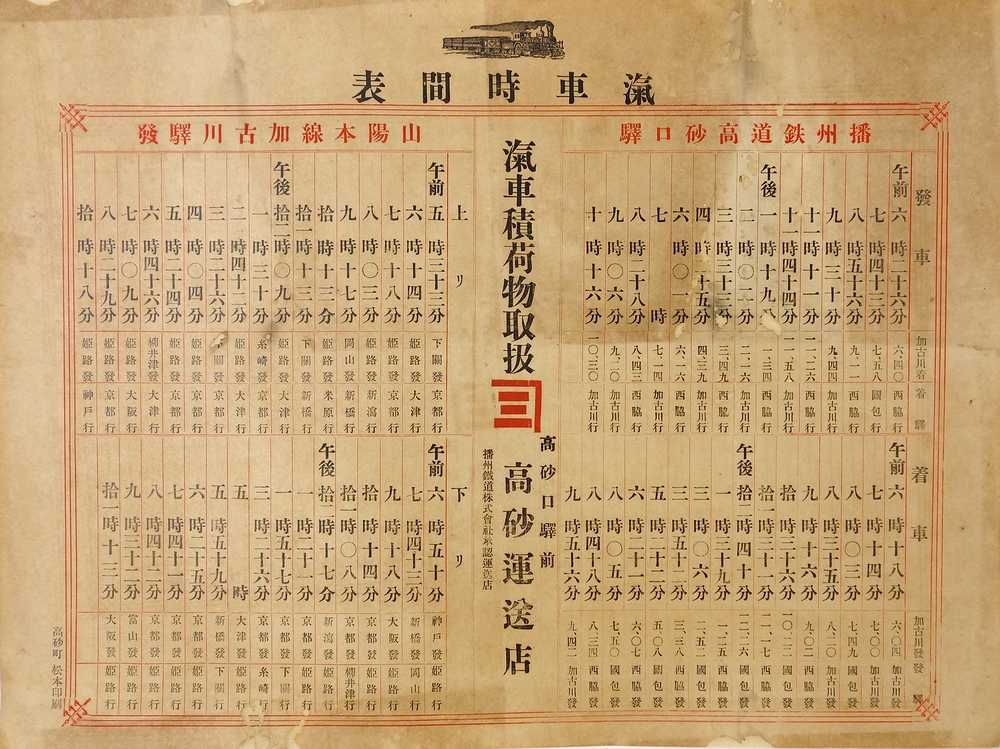 滊車時間表
播州鉄道高砂口驛
發車 加古川着 着驛
午前六時二十六分 六、四〇 西脇行
七時四十三分 七、五八 國包行
八時五十六分 九、一一 西脇行
九時三十分 九、四四 西脇行
十一時十一分 一一、二六 西脇行
十一時四十四分 一一、五八 加古川行
午後一時十九分 一、三四 西脇行
二時〇二分 二、一六 加古川行
三時三十三分 三、四九 西脇行
四時二十五分 四、三九 加古川行
六時〇一分 六、一六 西脇行
七時 七、一四 加古川行
八時二十八分 八、四三 西脇行
九時〇六分 九、二〇 加古川行
十時十六分 一〇、三〇 加古川行
着車 加古川發 發驛
午前六時十八分 六、〇四 加古川發
七時十四分 七、〇〇 加古川發
八時〇三分 七、四九 國包發
八時三十五分 八、二〇 加古川發
九時十六分 九、〇二 西脇發
拾時三十六分 一〇、二二 國包發
拾一時三十一分 一一、一七 西脇發
午後拾二時四十分 一二、二六 國包發
一時三十九分 一、二五 西脇發
三時〇六分 二、五二 國包發
三時五十二分 三、三八 西脇發
五時二十二分 五、〇八 國包發
六時二十一分 六、〇七 西脇發
八時〇五分 七、五〇 國包發
八時四十八分 八、三四 西脇發
九時五十六分 九、四二 加古川發
滊車積荷物取扱
高砂口驛前
高砂運送店
播州鐵道株式會社承認運送店
山陽本線加古川驛發
上リ
午前五時三十三分 下關發 京都行
六時十四分 姫路發 京都行
七時十八分 姫路發 大津行
八時〇三分 姫路發 新潟行
九時十七分 岡山發 新橋行
拾時三十三分 姫路發 米原行
拾一時十三分 下關發 新橋行
午後拾二時〇九分 姫路發 大津行
一時三十分 糸崎發 京都行
二時四十二分 姫路發 大津行
三時二十六分 下關發 京都行
四時〇四分 姫路發 京都行
五時二十四分 姫路發 京都行
六時四十六分 柳井津發 大津行
七時〇九分 姫路發 大阪行
八時二十九分 姫路發 京都行
拾時十八分 姫路發 神戸行
下リ
午前六時五十分 神戸發 姫路行
七時四十三分 新橋發 岡山行
九時十八分 大阪發 姫路行
拾時十四分 京都發 姫路行
拾一時〇八分 京都發 柳井津行
午後拾二時十七分 新潟發 姫路行
一時二十一分 京都發 姫路行
一時五十七分 京都發 下關行
三時二十六分 京都發 糸崎行
五時 大津發 姫路行
五時五十九分 新橋發 下關行
六時二十五分 京都發 姫路行
七時四十一分 京都發 姫路行
八時四十二分 京都發 姫路行
九時三十二分 富山發 姫路行
拾一時十三分 大阪發 姫路行
高砂町 松本印刷